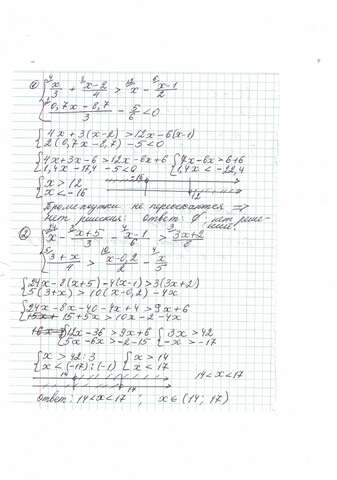 ① { x/3 + x-2/4 > x - x-1/2
0,7x-8,7/3 - 5/6 < 0
{ 4x + 3(x-2) > 12x - 6(x-1)
2(0,7x-8,7) - 5 < 0
{ 4x+3x-6 > 12x-6x+6 { 7x-6x > 6+6
1,4x - 17,4 - 5 < 0 { 1,4x < -22,4
{ x > 12
x < -16
Промежутки не пересекаются ⇒
нет решения: ответ: ∅, нет решения.
② { x - 2x+5/3 - x-1/6 > 3x+2/8
3+x/4 > x-0,2/2 - x/5
{ 24x - 8(x+5) - 4(x-1) > 3(3x+2)
5(3+x) > 10(x-0,2) - 4x
{ 24x - 8x - 40 - 4x + 4 > 9x + 6
15 + 5x > 10x - 2 - 4x
{ 12x - 36 > 9x + 6 { 3x > 42
5x - 6x > -2 - 15 { -x > -17
{ x > 42 : 3 { x > 14
x < (-17) : (-1) { x < 17 14 < x < 17
14 17
ответ: 14 < x < 17 ; x ∈ (14; 17)